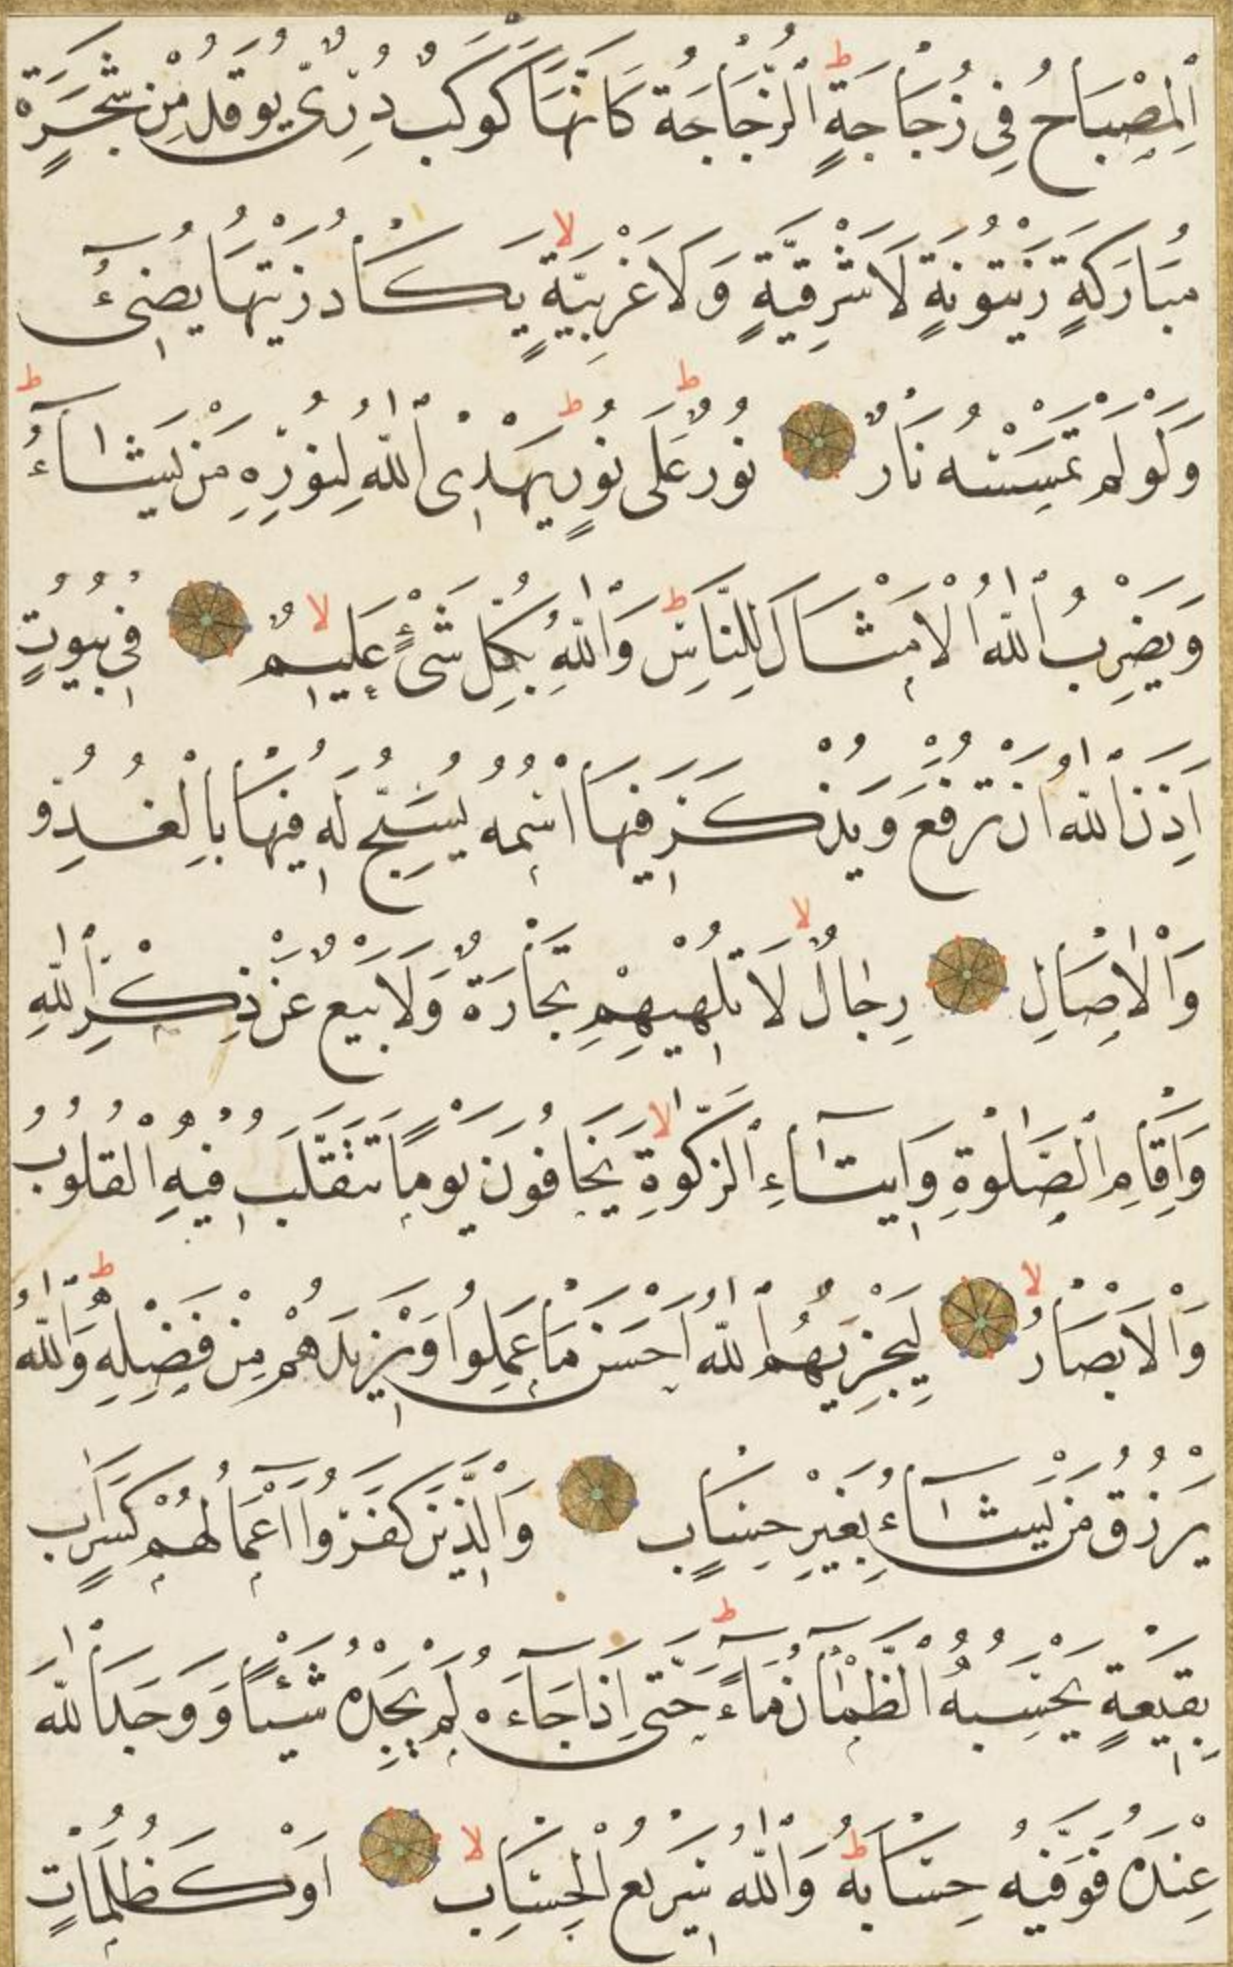 اَلْمِصْبَاحُ فِى زُجَاجَةٍ ط اَلزُّجَاجَةُ كَاَنَّهَا كَوْكَبٌ دُرِّىٌّ يُوقَدُ مِنْ شَجَرَةٍ
مُبَارَكَةٍ زَيْتُونَةٍ لَا شَرْقِيَّةٍ وَلَا غَرْبِيَّةٍ لا يَكَادُ زَيْتُهَا يُضِىٓءُ
وَلَوْ لَمْ تَمْسَسْهُ نَارٌ نُورٌ عَلَى ط نُورٍ ط يَهْدِى اللّٰهُ لِنُورِهِ مَنْ يَشَآءُ ط
وَيَضْرِبُ اللّٰهُ الْاَمْثَالَ لِلنَّاسِ ط وَاللّٰهُ بِكُلِّ شَىْءٍ عَلِيمٌ لا فِى بُيُوتٍ
اَذِنَ اللّٰهُ اَنْ تُرْفَعَ وَيُذْكَرَ فِيهَا اسْمُهُ يُسَبِّحُ لَهُ فِيهَا بِالْغُدُوِّ
وَالْاٰصَالِ رِجَالٌ لا لَا تُلْهِيهِمْ تِجَارَةٌ وَلَا بَيْعٌ عَنْ ذِكْرِ اللّٰهِ
وَاِقَامِ الصَّلٰوةِ وَاِيتَآءِ الزَّكٰوةِ لا يَخَافُونَ يَوْمًا تَتَقَلَّبُ فِيهِ الْقُلُوبُ
وَالْاَبْصَارُ لا لِيَجْزِيَهُمُ اللّٰهُ اَحْسَنَ مَا عَمِلُوا وَيَزِيدَهُمْ مِنْ فَضْلِهِ ط وَاللّٰهُ
يَرْزُقُ مَنْ يَشَآءُ بِغَيْرِ حِسَابٍ وَالَّذِينَ كَفَرُوا اَعْمَالُهُمْ كَسَرَابٍ
بِقِيعَةٍ يَحْسَبُهُ الظَّمْاٰنُ مَآءً ط حَتّٰى اِذَا جَآءَهُ لَمْ يَجِدْهُ شَيْئًا وَوَجَدَ اللّٰهَ
عِنْدَهُ فَوَفّٰيهُ حِسَابَهُ ط وَاللّٰهُ سَرِيعُ الْحِسَابِ لا اَوْ كَظُلُمَاتٍ